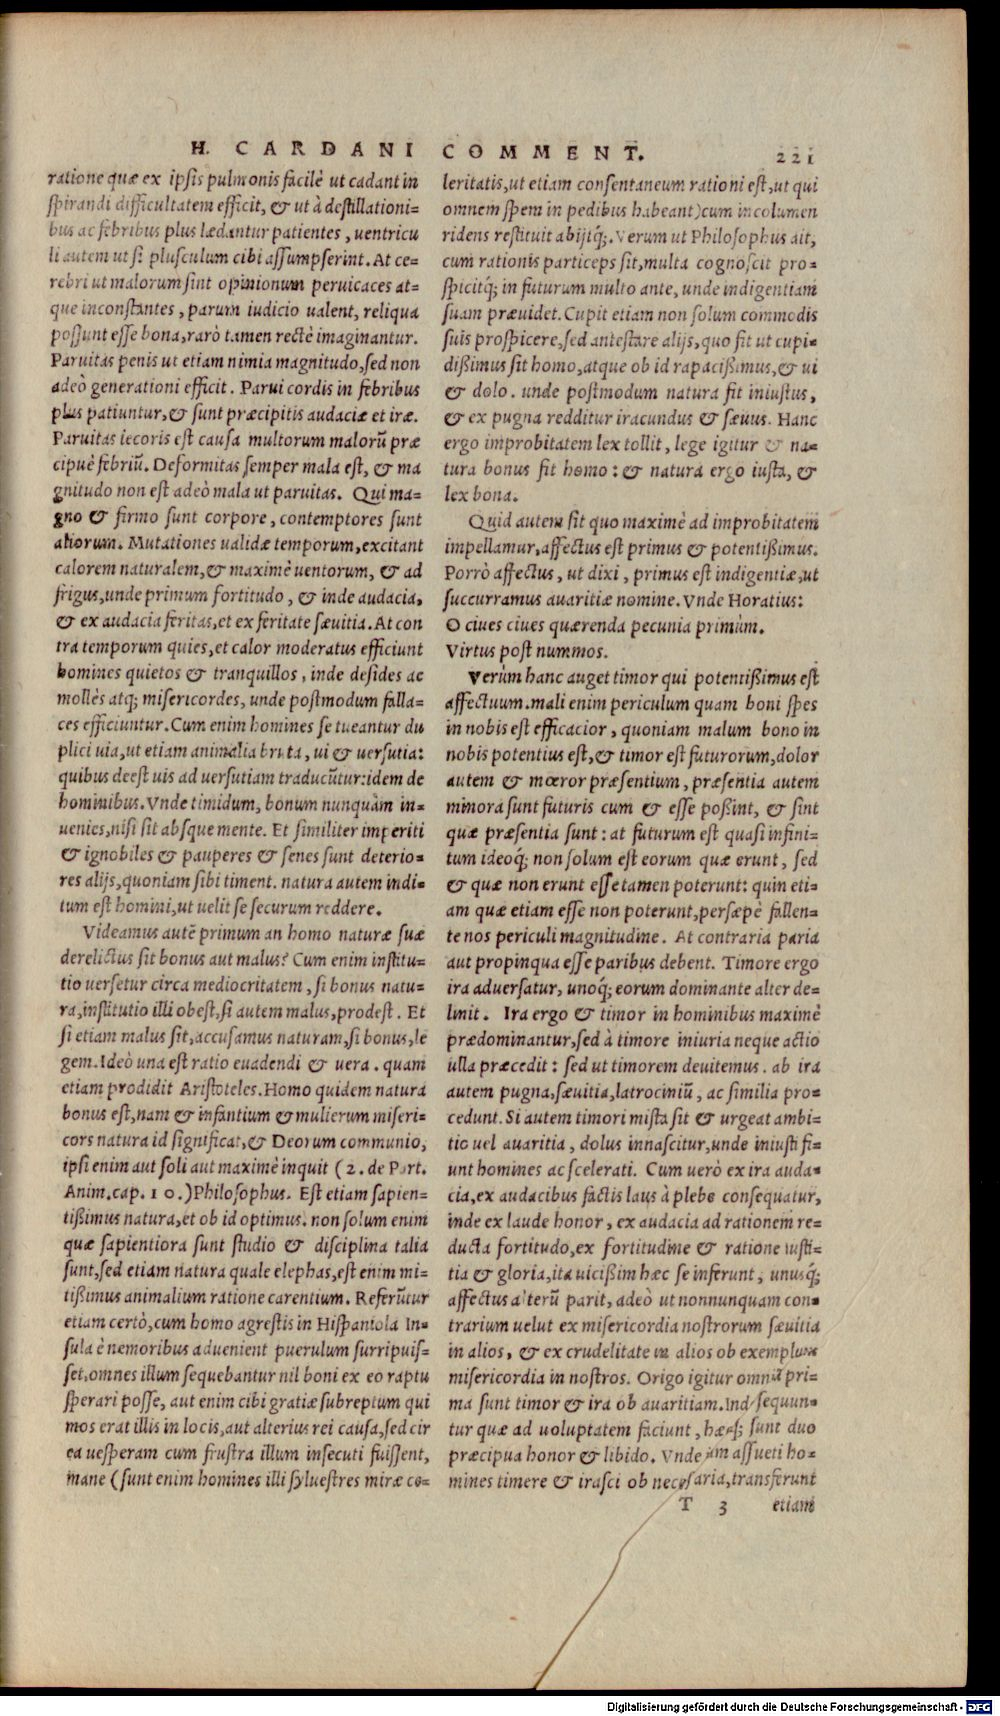 H. CARDANI COMMENT. 221
ratione quæ ex ipsis pulmonis facilè ut cadant in
spirandi difficultatem efficit, & ut à destillationi=
bus ac febribus plus lædantur patientes, uentricu
li autem ut si plusculum cibi assumpserint. At ce=
rebri ut malorum sint opinionum peruicaces at=
que inconstantes, parum iudicio ualent, reliqua
possunt esse bona, rarò tamen rectè imaginantur.
Paruitas penis ut etiam nimia magnitudo, sed non
adeò generationi efficit. Parui cordis in febribus
plus patiuntur, & sunt præcipitis audaciæ et iræ.
Paruitas iecoris est causa multorum malorũ præ
cipuè febriũ. Deformitas semper mala est, & ma
gnitudo non est adeò mala ut paruitas. Qui ma=
gno & firmo sunt corpore, contemptores sunt
aliorum. Mutationes ualidæ temporum, excitant
calorem naturalem, & maximè uentorum, & ad
frigus, unde primum fortitudo, & inde audacia,
& ex audacia feritas, et ex feritate sæuitia. At con
tra temporum quies, et calor moderatus efficiunt
homines quietos & tranquillos, inde desides ac
mollès atq; misericordes, unde postmodum falla=
ces efficiuntur. Cum enim homines se tueantur du
plici uia, ut etiam animalia bruta, ui & uersutia:
quibus deest uis ad uersutiam traducũtur: idem de
hominibus. Vnde timidum, bonum nunquàm in=
uenies, nisi sit absque mente. Et similiter imperiti
& ignobiles & pauperes & senes sunt deterio=
res alijs, quoniam sibi timent. natura autem indi=
tum est homini, ut uelit se securum reddere.
Videamus autẽ primum an homo naturæ suæ
derelictus sit bonus aut malus? Cum enim institu=
tio uersetur circa mediocritatem, si bonus natu=
ra, institutio illi obest, si autem malus, prodest. Et
si etiam malus sit, accusamus naturam, si bonus, le
gem. Ideò una est ratio euadendi & uera. quam
etiam prodidit Aristoteles. Homo quidem natura
bonus est, nam & infantium & mulierum miseri=
cors natura id significat, & Deorum communio,
ipsi enim aut soli aut maximè inquit (2. de Part.
Anim. cap. 10.) Philosophus. Est etiam sapien=
tißimus natura, et ob id optimus. non solum enim
quæ sapientiora sunt studio & disciplina talia
sunt, sed etiam natura quale elephas, est enim mi=
tißimus animalium ratione carentium. Referũtur
etiam certò, cum homo agrestis in Hispaniola In=
sula è nemoribus aduenient puerulum surripuis=
set, omnes illum sequebantur nil boni ex eo raptu
sperari posse, aut enim cibi gratiæ subreptum qui
mos erat illis in locis, aut alterius rei causa, sed cir
ca uesperam cum frustra illum insecuti fuissent,
mane (sunt enim homines illi syluestres miræ ce=
leritatis, ut etiam consentaneum rationi est, ut qui
omnem spem in pedibus habeant) cum incolumen
ridens restituit abijtq;. Verum ut Philosophus ait,
cum rationis particeps sit, multa cognoscit pro=
spicitq; in futurum multo ante, unde indigentiam
suam præuidet. Cupit etiam non solum commodis
suis prospicere, sed antestare alijs, quo fit ut cupi=
dißimus sit homo, atque ob id rapacißimus, & ui
& dolo. unde postmodum natura fit iniustus,
& ex pugna redditur iracundus & sæuus. Hanc
ergo improbitatem lex tollit, lege igitur & na=
tura bonus fit homo: & natura ergo iusta, &
lex bona.
Quid autem sit quo maximè ad improbitatem
impellamur, affectus est primus & potentißimus.
Porrò affectus, ut dixi, primus est indigentiæ, ut
succurramus auaritiæ nomine. Vnde Horatius:
O ciues ciues quærenda pecunia primùm.
Virtus post nummos.
Verùm hanc auget timor qui potentißimus est
affectuum. mali enim periculum quam boni spes
in nobis est efficacior, quoniam malum bono in
nobis potentius est, & timor est futurorum, dolor
autem & mœror præsentium, præsentia autem
minora sunt futuris cum & esse poßint, & sint
quæ præsentia sunt: at futurum est quasi infini=
tum ideoq; non solum est eorum quæ erunt, sed
& quæ non erunt esse tamen poterunt: quin eti=
am quæ etiam esse non poterunt, persæpè fallen=
te nos periculi magnitudine. At contraria paria
aut propinqua esse paribus debent. Timore ergo
ira aduersatur, unoq; eorum dominante alter de=
linit. Ira ergo & timor in hominibus maximè
prædominantur, sed à timore iniuria neque actio
ulla præcedit: sed ut timorem deuitemus. ab ira
autem pugna, sæuitia, latrociniũ, ac similia pro=
cedunt. Si autem timori mista sit & urgeat ambi=
tio uel auaritia, dolus innascitur, unde iniusti fi=
unt homines ac scelerati. Cum uerò ex ira auda=
cia, ex audacibus factis laus à plebe consequatur,
inde ex laude honor, ex audacia ad rationem re=
ducta fortitudo, ex fortitudine & ratione iusti=
tia & gloria, ita uicißim hæc se inferunt, unusq;
affectus alterũ parit, adeò ut nonnunquam con=
trarium uelut ex misericordia nostrorum sæuitia
in alios, & ex crudelitate in alios ob exemplum
misericordia in nostros. Origo igitur omniũ pri=
ma sunt timor & ira ob auaritiam. Inde sequun=
tur quæ ad uoluptatem faciunt, hæcq; sunt duo
præcipua honor & libido. Vnde iam assueti ho=
mines timere & irasci ob necessaria, transferunt
T 3 etiam
Digitalisierung gefördert durch die Deutsche Forschungsgemeinschaft - DFG